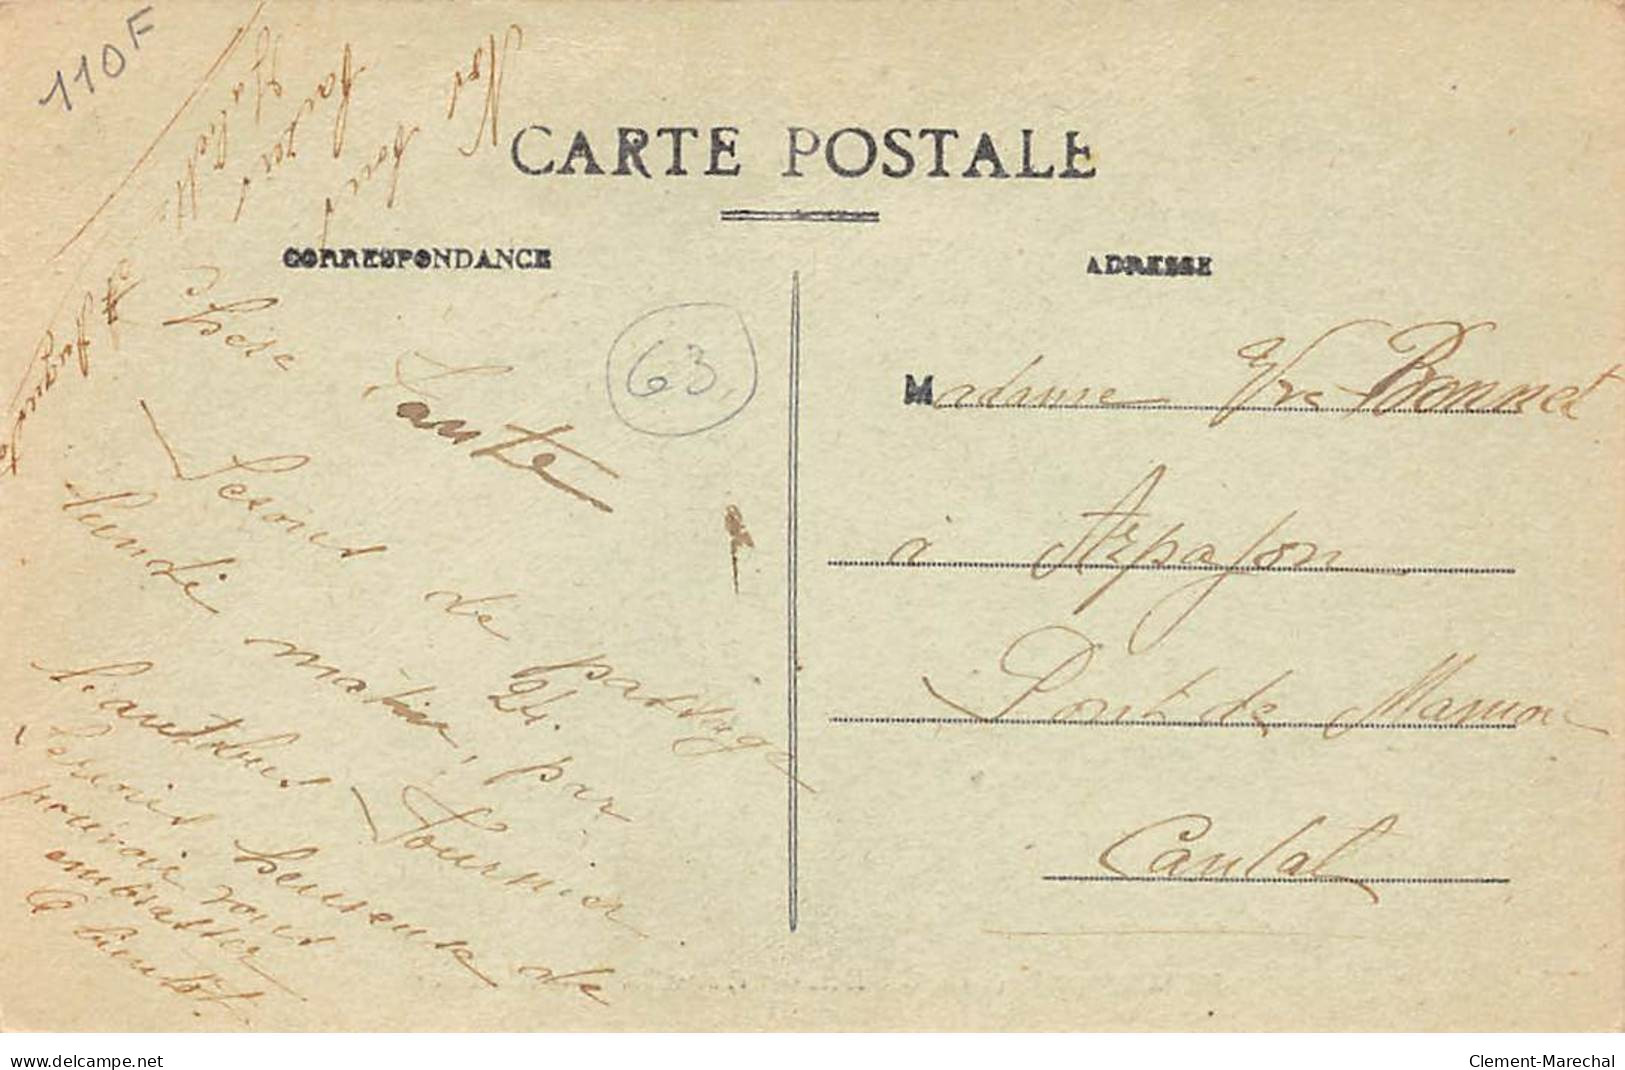 110F
CARTE POSTALE
CORRESPONDANCE
ADRESSE
63
Chère Tante
Serons de passage
lundi matin, 24. par
l'autobus Tournier
Serions heureuse de
pouvoir vous
embrasser
A bientôt.
Madame Vve Bonnet
à Arpajon
Pont de Mamou
Cantal
www.delcampe.net
Clement-Marechal